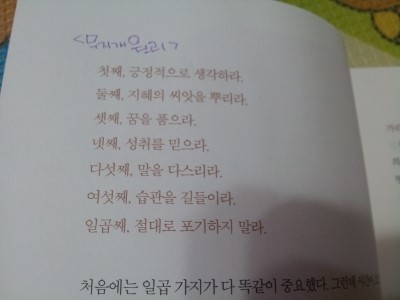 <무지개 원리>
첫째, 긍정적으로 생각하라.
둘째, 지혜의 씨앗을 뿌리라.
셋째, 꿈을 품으라.
넷째, 성취를 믿으라.
다섯째, 말을 다스리라.
여섯째, 습관을 길들이라.
일곱째, 절대로 포기하지 말라.
처음에는 일곱 가지가 다 똑같이 중요했다. 그런데